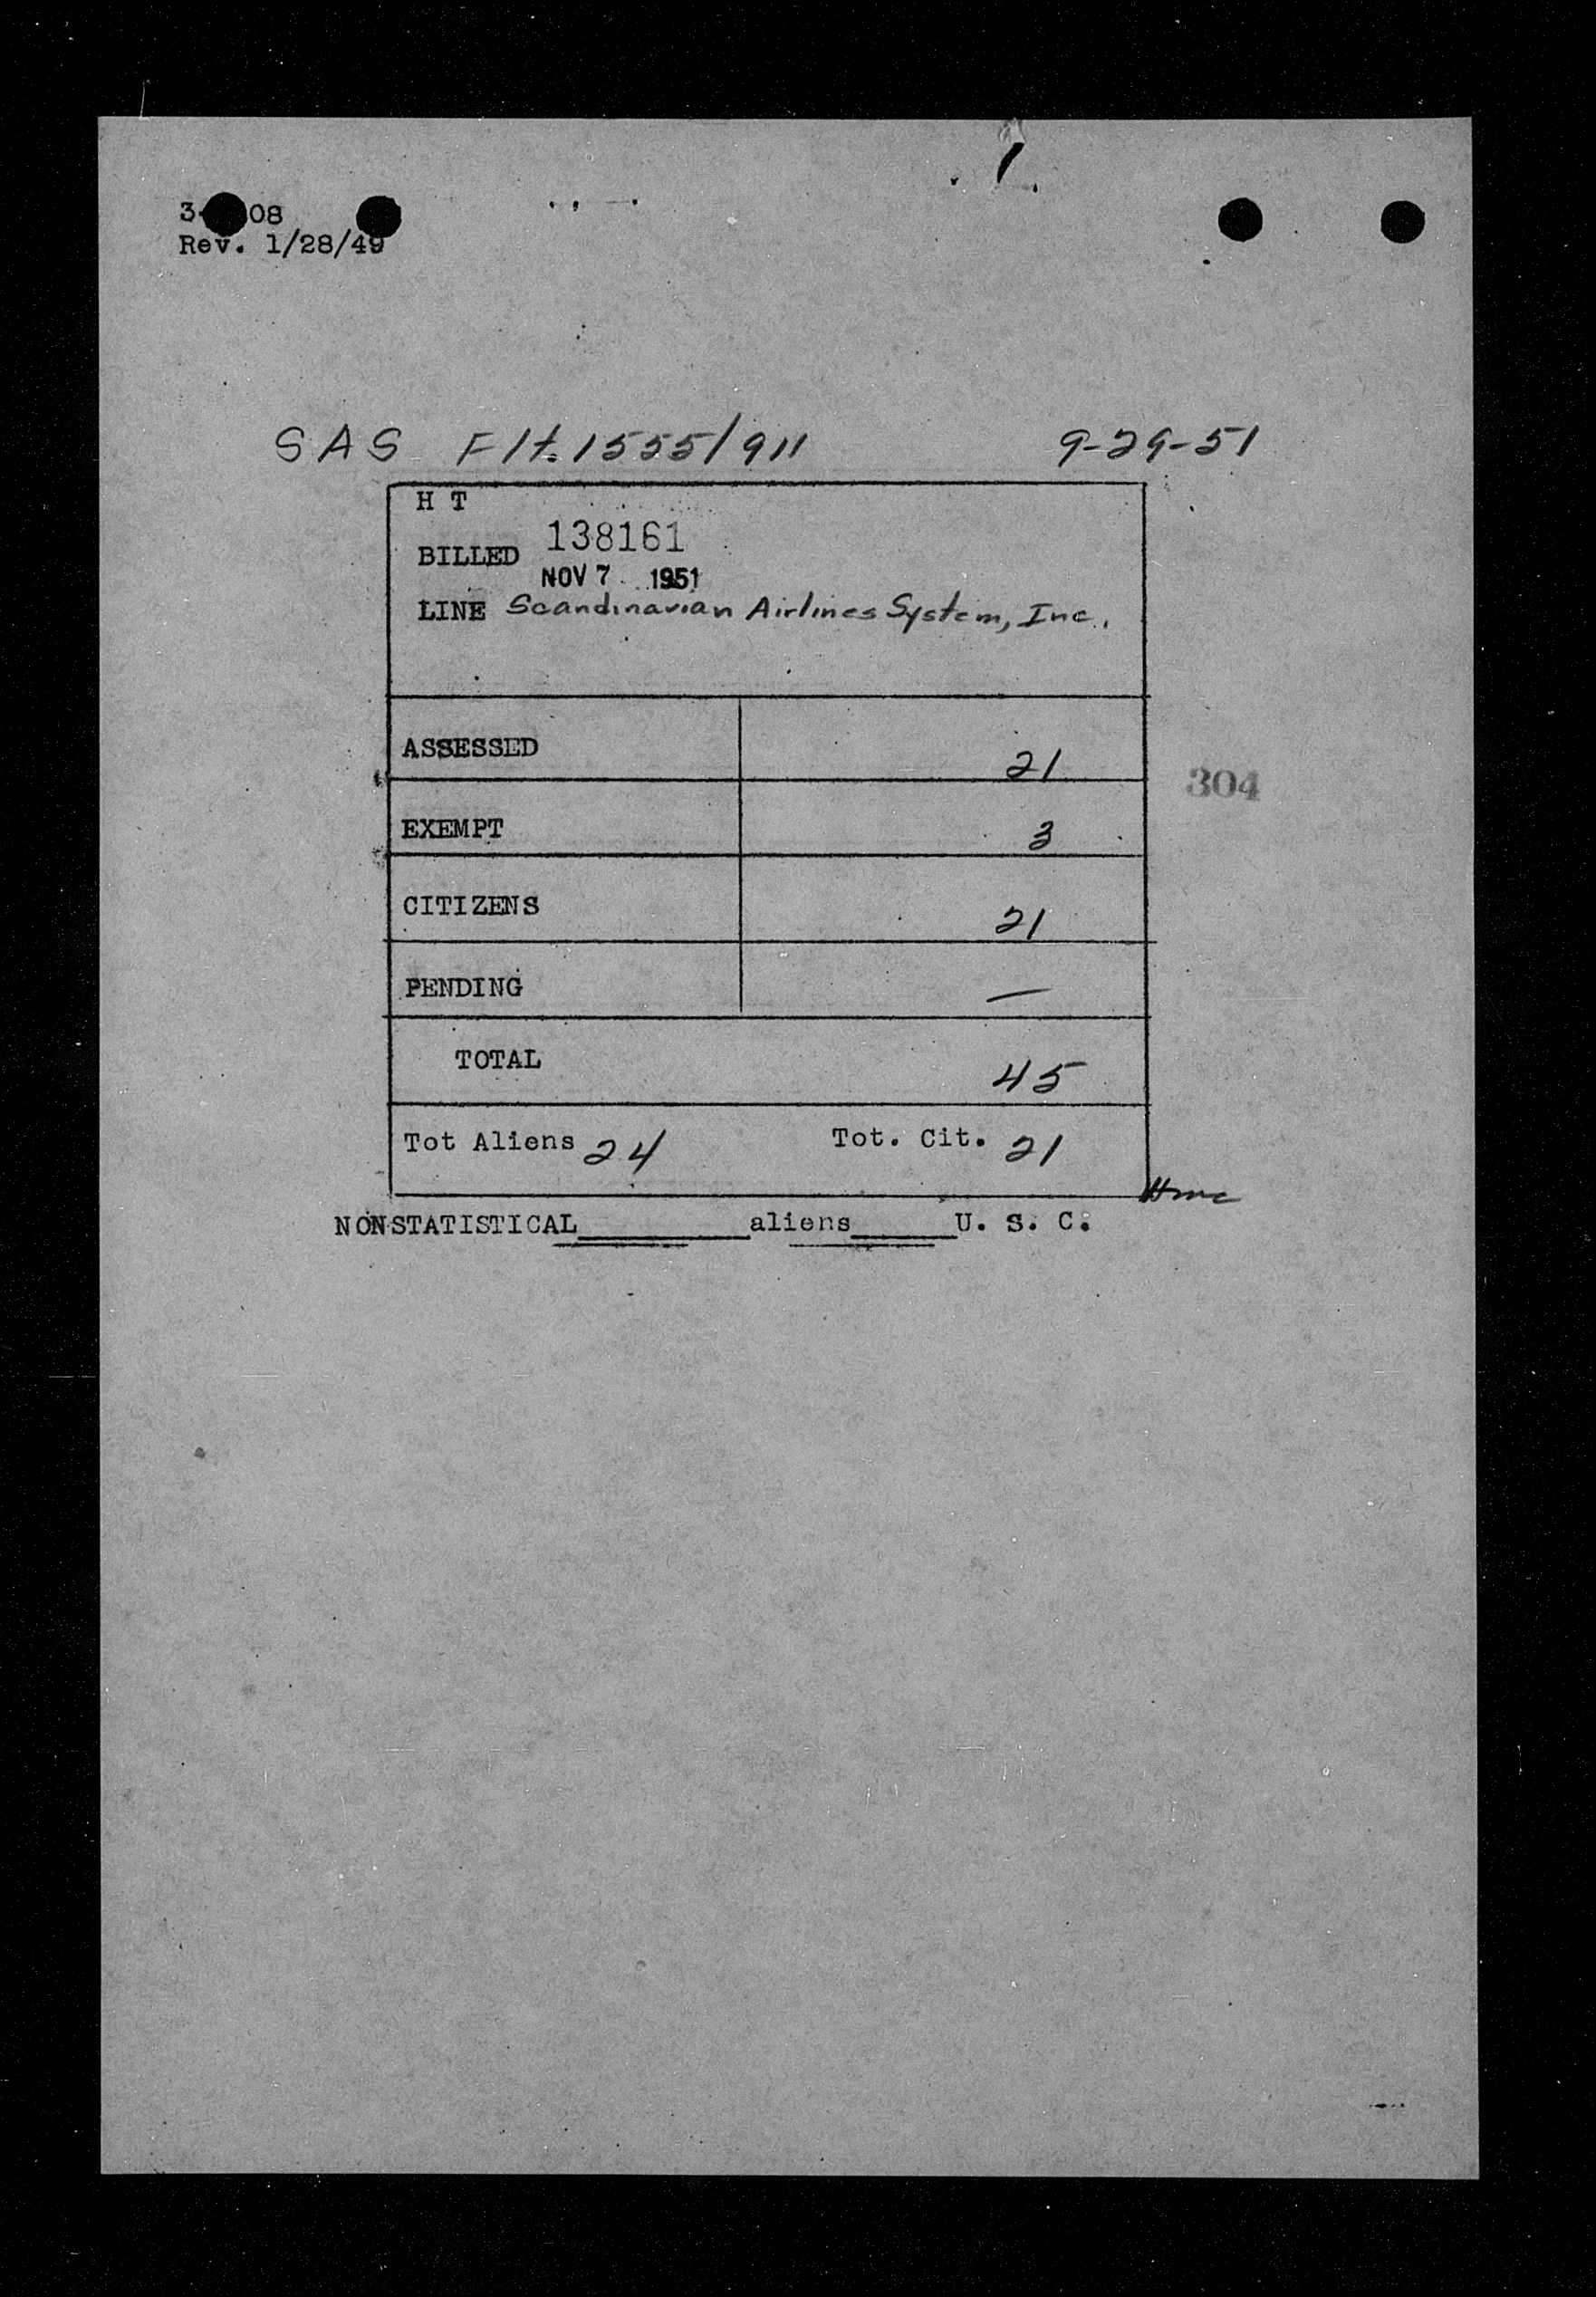 08
Rev. 1/28/49
SAS Flt. 1555/911 9-29-51
H T
138161
BILLED
NOV 7 1951
LINE Scandinavian Airlines System, Inc.
ASSESSED 21
304
EXEMPT 3
CITIZENS 21
PENDING —
TOTAL 45
Tot Aliens 24 Tot. Cit. 21
NONSTATISTICAL________aliens_____U. S. C.